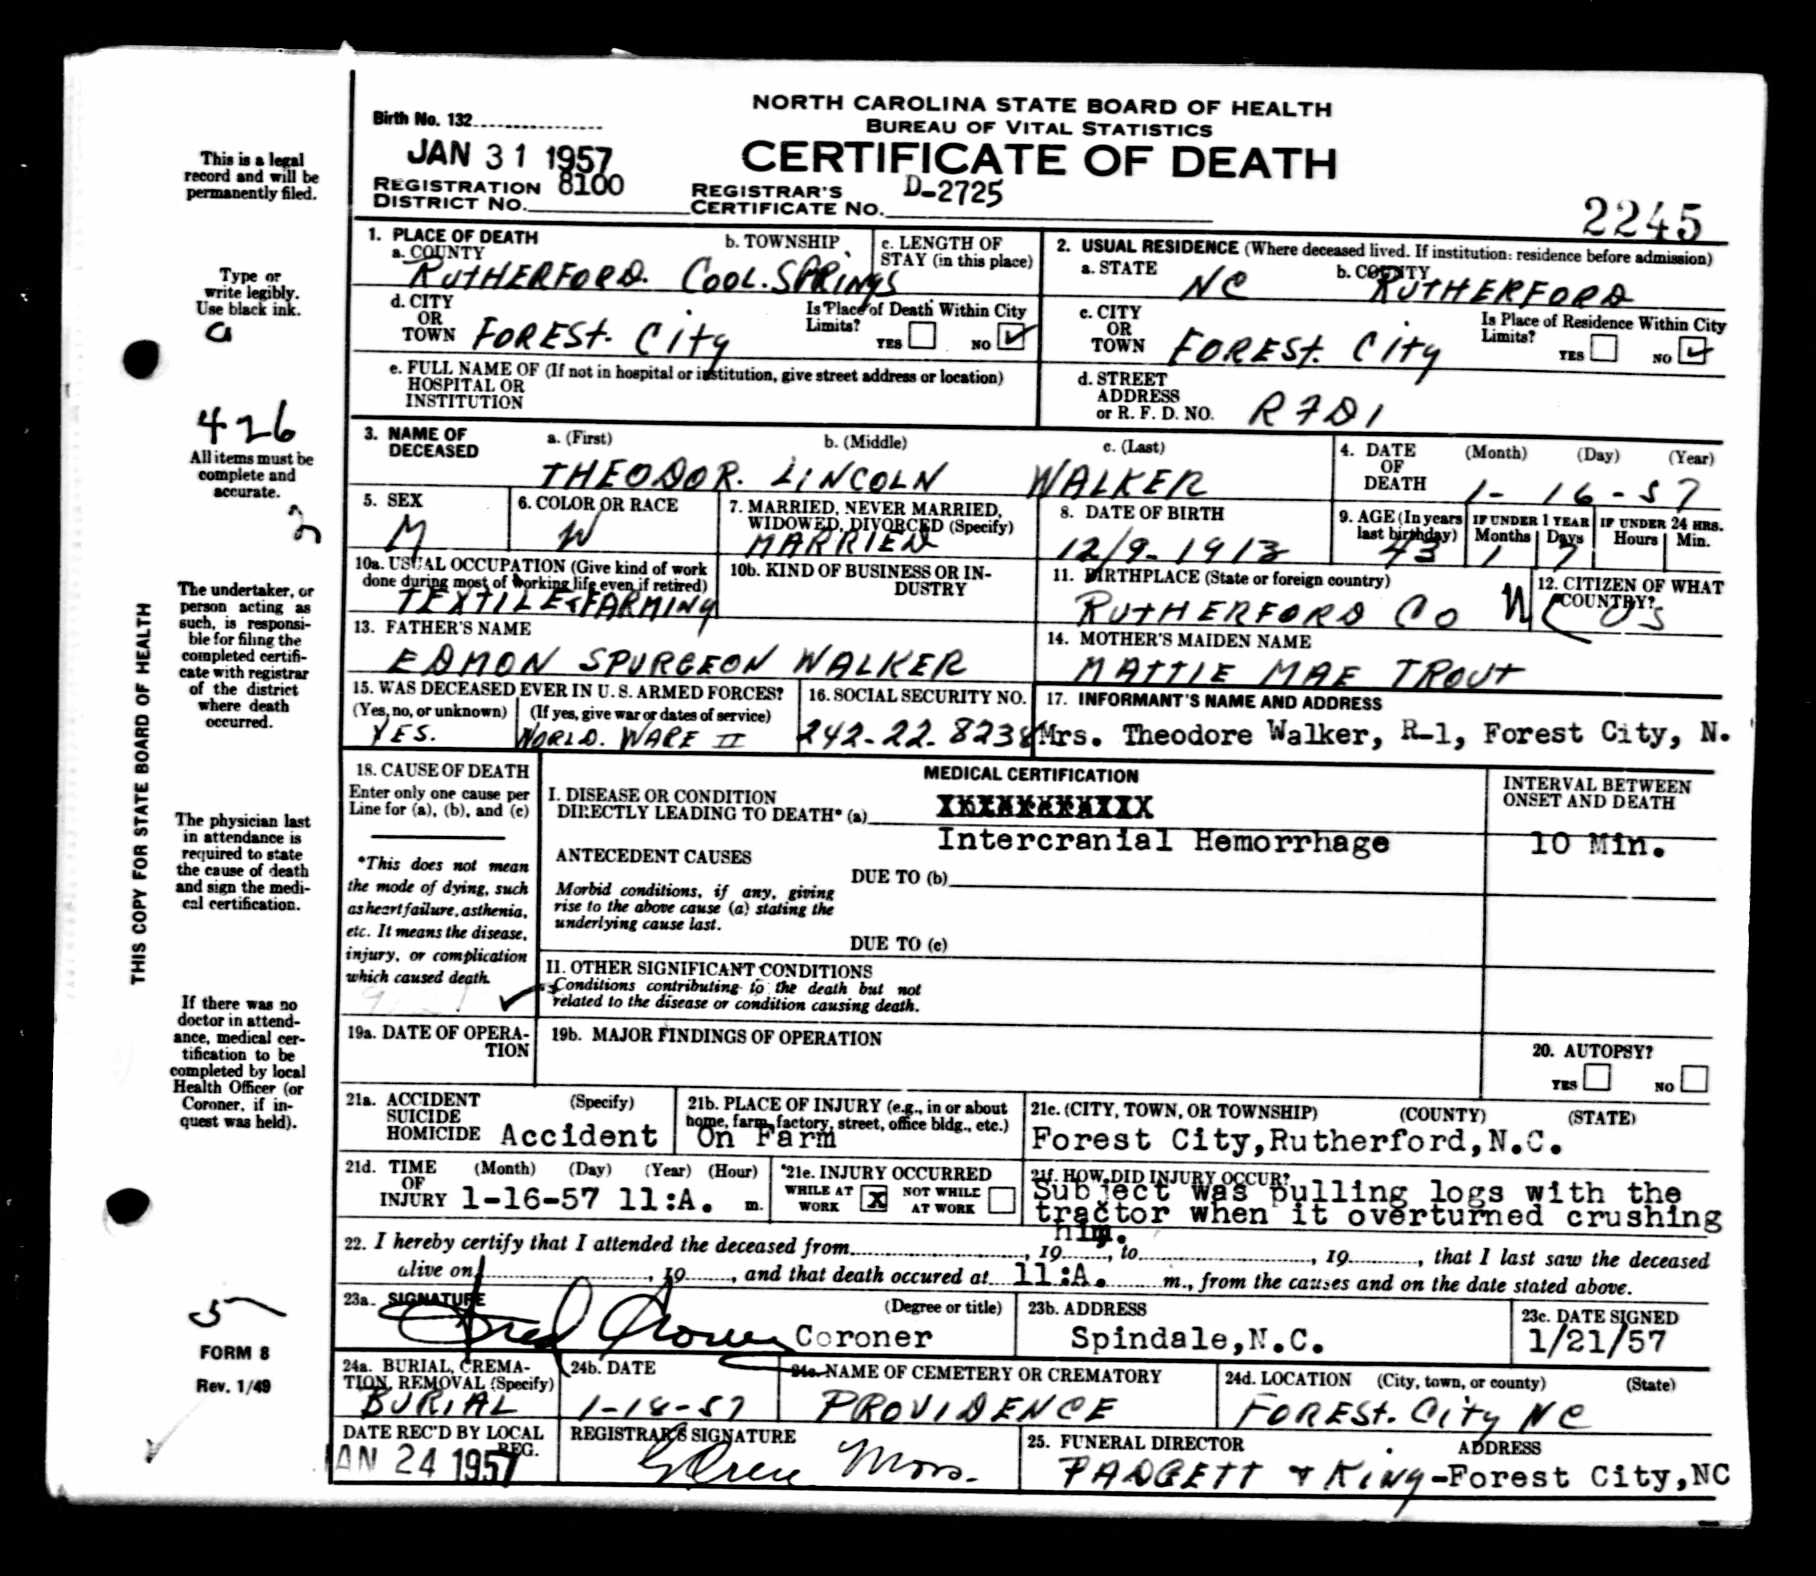 NORTH CAROLINA STATE BOARD OF HEALTH
BUREAU OF VITAL STATISTICS
CERTIFICATE OF DEATH
Birth No. 132
JAN 31 1957
REGISTRATION DISTRICT NO. 8100
REGISTRAR'S CERTIFICATE NO. D-2725
2245
This is a legal
record and will be
permanently filed.
Type or
write legibly.
Use black ink.
426
All items must be
complete and
accurate.
2
The undertaker, or
person acting as
such, is responsi-
ble for filing the
completed certifi-
cate with registrar
of the district
where death
occurred.
The physician last
in attendance is
required to state
the cause of death
and sign the medi-
cal certification.
If there was no
doctor in attend-
ance, medical cer-
tification to be
completed by local
Health Officer (or
Coroner, if in-
quest was held).
5
FORM 8
Rev. 1/49
THIS COPY FOR STATE BOARD OF HEALTH
1. PLACE OF DEATH
a. COUNTY RUTHERFORD.
b. TOWNSHIP COOL. SPRINGS
c. LENGTH OF STAY (in this place)
d. CITY OR TOWN FOREST. City
Is Place of Death Within City Limits? YES NO ✓
e. FULL NAME OF (If not in hospital or institution, give street address or location)
HOSPITAL OR
INSTITUTION
2. USUAL RESIDENCE (Where deceased lived. If institution: residence before admission)
a. STATE NC
b. COUNTY RUTHERFORD
c. CITY OR TOWN FOREST. City
Is Place of Residence Within City Limits? YES NO ✓
d. STREET ADDRESS or R. F. D. NO. RFD1
3. NAME OF DECEASED
a. (First) THEODOR.
b. (Middle) LINCOLN
c. (Last) WALKER
4. DATE OF DEATH (Month) (Day) (Year) 1-16-57
5. SEX M
6. COLOR OR RACE W
7. MARRIED, NEVER MARRIED, WIDOWED, DIVORCED (Specify) MARRIED
8. DATE OF BIRTH 12/9-1913
9. AGE (In years last birthday) 43
IF UNDER 1 YEAR Months 1 Days 7
IF UNDER 24 HRS. Hours Min.
10a. USUAL OCCUPATION (Give kind of work done during most of working life, even if retired) TEXTILE & FARMING
10b. KIND OF BUSINESS OR INDUSTRY
11. BIRTHPLACE (State or foreign country) RUTHERFORD CO NC
12. CITIZEN OF WHAT COUNTRY? US
13. FATHER'S NAME
EDMON SPURGEON WALKER
14. MOTHER'S MAIDEN NAME
MATTIE MAE TROUT
15. WAS DECEASED EVER IN U. S. ARMED FORCES?
(Yes, no, or unknown) YES.
(If yes, give war or dates of service) WORLD. WARE II
16. SOCIAL SECURITY NO. 242-22-8238
17. INFORMANT'S NAME AND ADDRESS
Mrs. Theodore Walker, R-1, Forest City, N.
18. CAUSE OF DEATH
Enter only one cause per
Line for (a), (b), and (c)
*This does not mean
the mode of dying, such
as heart failure, asthenia,
etc. It means the disease,
injury, or complication
which caused death.
MEDICAL CERTIFICATION
INTERVAL BETWEEN ONSET AND DEATH
I. DISEASE OR CONDITION
DIRECTLY LEADING TO DEATH* (a)
Intercranial Hemorrhage 10 Min.
ANTECEDENT CAUSES
DUE TO (b)
Morbid conditions, if any, giving
rise to the above cause (a) stating the
underlying cause last.
DUE TO (c)
II. OTHER SIGNIFICANT CONDITIONS
Conditions contributing to the death but not
related to the disease or condition causing death.
19a. DATE OF OPERATION
19b. MAJOR FINDINGS OF OPERATION
20. AUTOPSY? YES NO
21a. ACCIDENT SUICIDE HOMICIDE (Specify) Accident
21b. PLACE OF INJURY (e.g., in or about home, farm, factory, street, office bldg., etc.) On Farm
21c. (CITY, TOWN, OR TOWNSHIP) (COUNTY) (STATE)
Forest City, Rutherford, N.C.
21d. TIME OF INJURY (Month) (Day) (Year) (Hour) 1-16-57 11:A. m.
21e. INJURY OCCURRED WHILE AT WORK X NOT WHILE AT WORK
21f. HOW DID INJURY OCCUR?
Subject was pulling logs with the
tractor when it overturned crushing
him.
22. I hereby certify that I attended the deceased from , 19 , to , 19 , that I last saw the deceased
alive on , 19 , and that death occured at 11:A. m., from the causes and on the date stated above.
23a. SIGNATURE (Degree or title) Coroner
23b. ADDRESS Spindale, N.C.
23c. DATE SIGNED 1/21/57
24a. BURIAL, CREMATION, REMOVAL (Specify) BURIAL
24b. DATE 1-18-57
24c. NAME OF CEMETERY OR CREMATORY PROVIDENCE
24d. LOCATION (City, town, or county) (State) FOREST. City NC
DATE REC'D BY LOCAL REG. JAN 24 1957
REGISTRAR'S SIGNATURE
25. FUNERAL DIRECTOR ADDRESS
PADGETT & KING-Forest City, NC